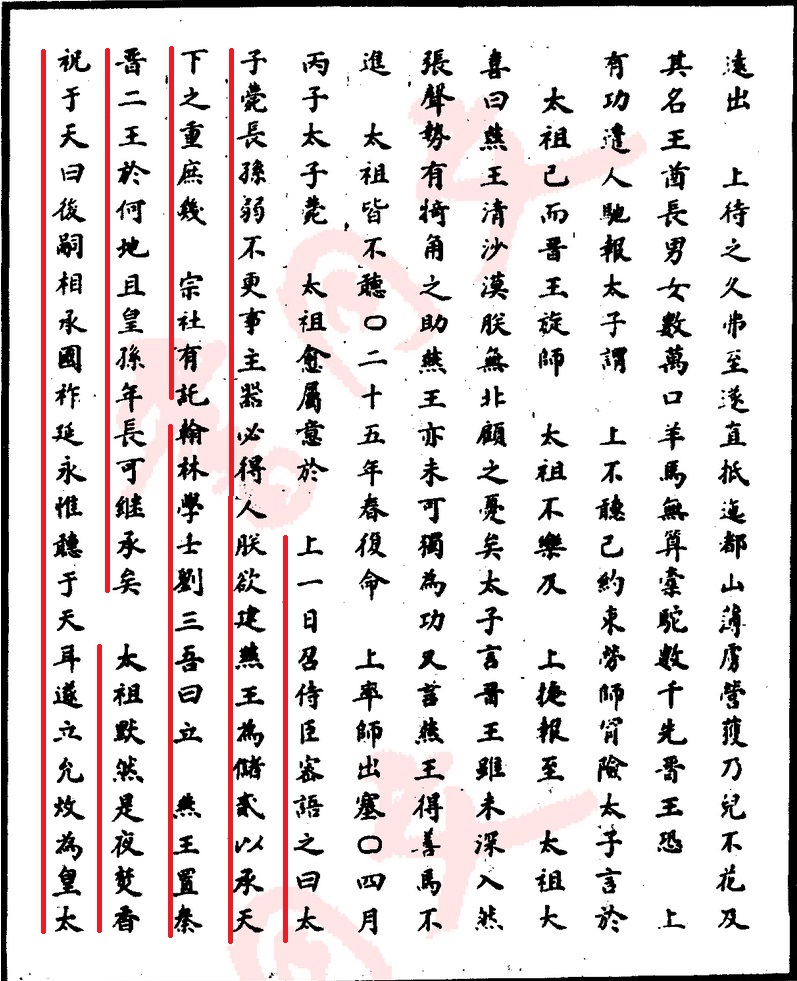 遠出　上待之久弗至遂直抵迤都山薄虜營獲乃兒不花及
其名王酋長男女數萬口羊馬無算橐駝數千先晉王恐　上
有功遣人馳報太子謂　上不聽己約束勞師冐險太子言於
太祖已而晉王旋師　太祖不樂及　上捷報至　太祖大
喜曰燕王清沙漠朕無北顧之憂矣太子言晉王雖未深入然
張聲勢有犄角之助燕王亦未可獨為功又言燕王得善馬不
進　太祖皆不聽〇二十五年春復命　上率師出塞〇四月
丙子太子薨　太祖愈屬意於　上一日召侍臣密語之曰太
子薨長孫弱不更事主器必得人朕欲建燕王為儲貳以承天
下之重庶幾　宗社有託翰林學士劉三吾曰立　燕王置秦
晉二王於何地且皇孫年長可繼承矣　太祖默然是夜焚香
祝于天曰後嗣相承國祚延永惟聽于天耳遂立允炆為皇太